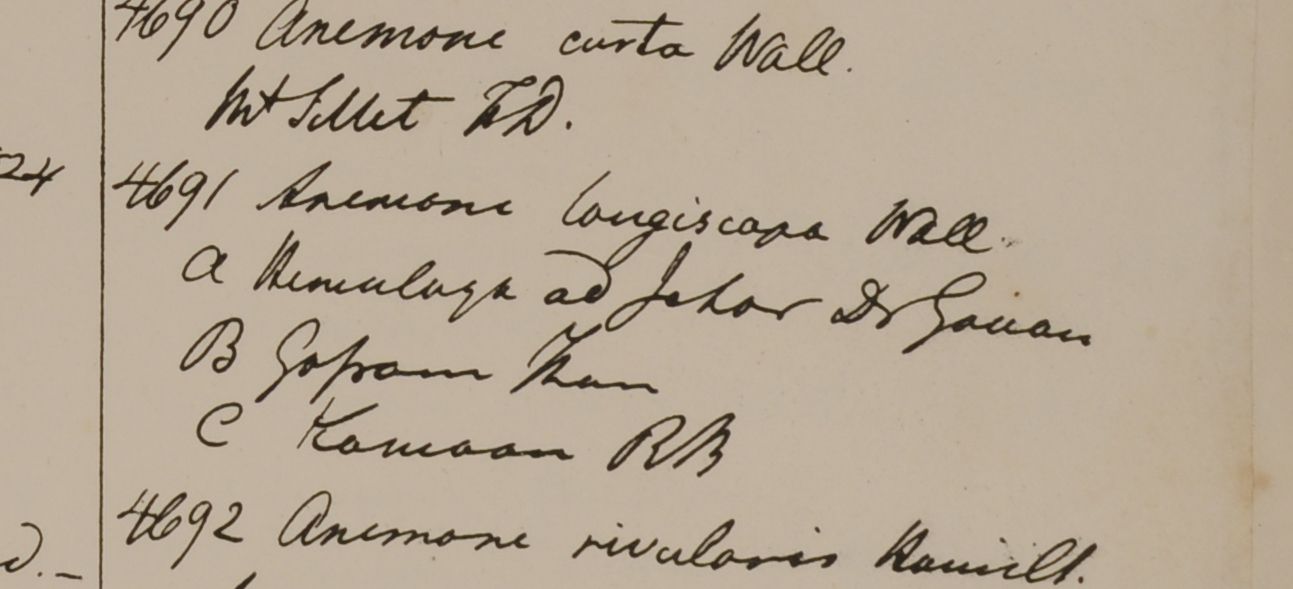 4690 Anemone curta Wall.
Mt Sillet FD.
24
4691 Anemone longiscapa Wall
a Himalaya ad Jchor Dr Govan
B Gossam Than
C Kamaon RB
4692 Anemone rivularis Hamilt.